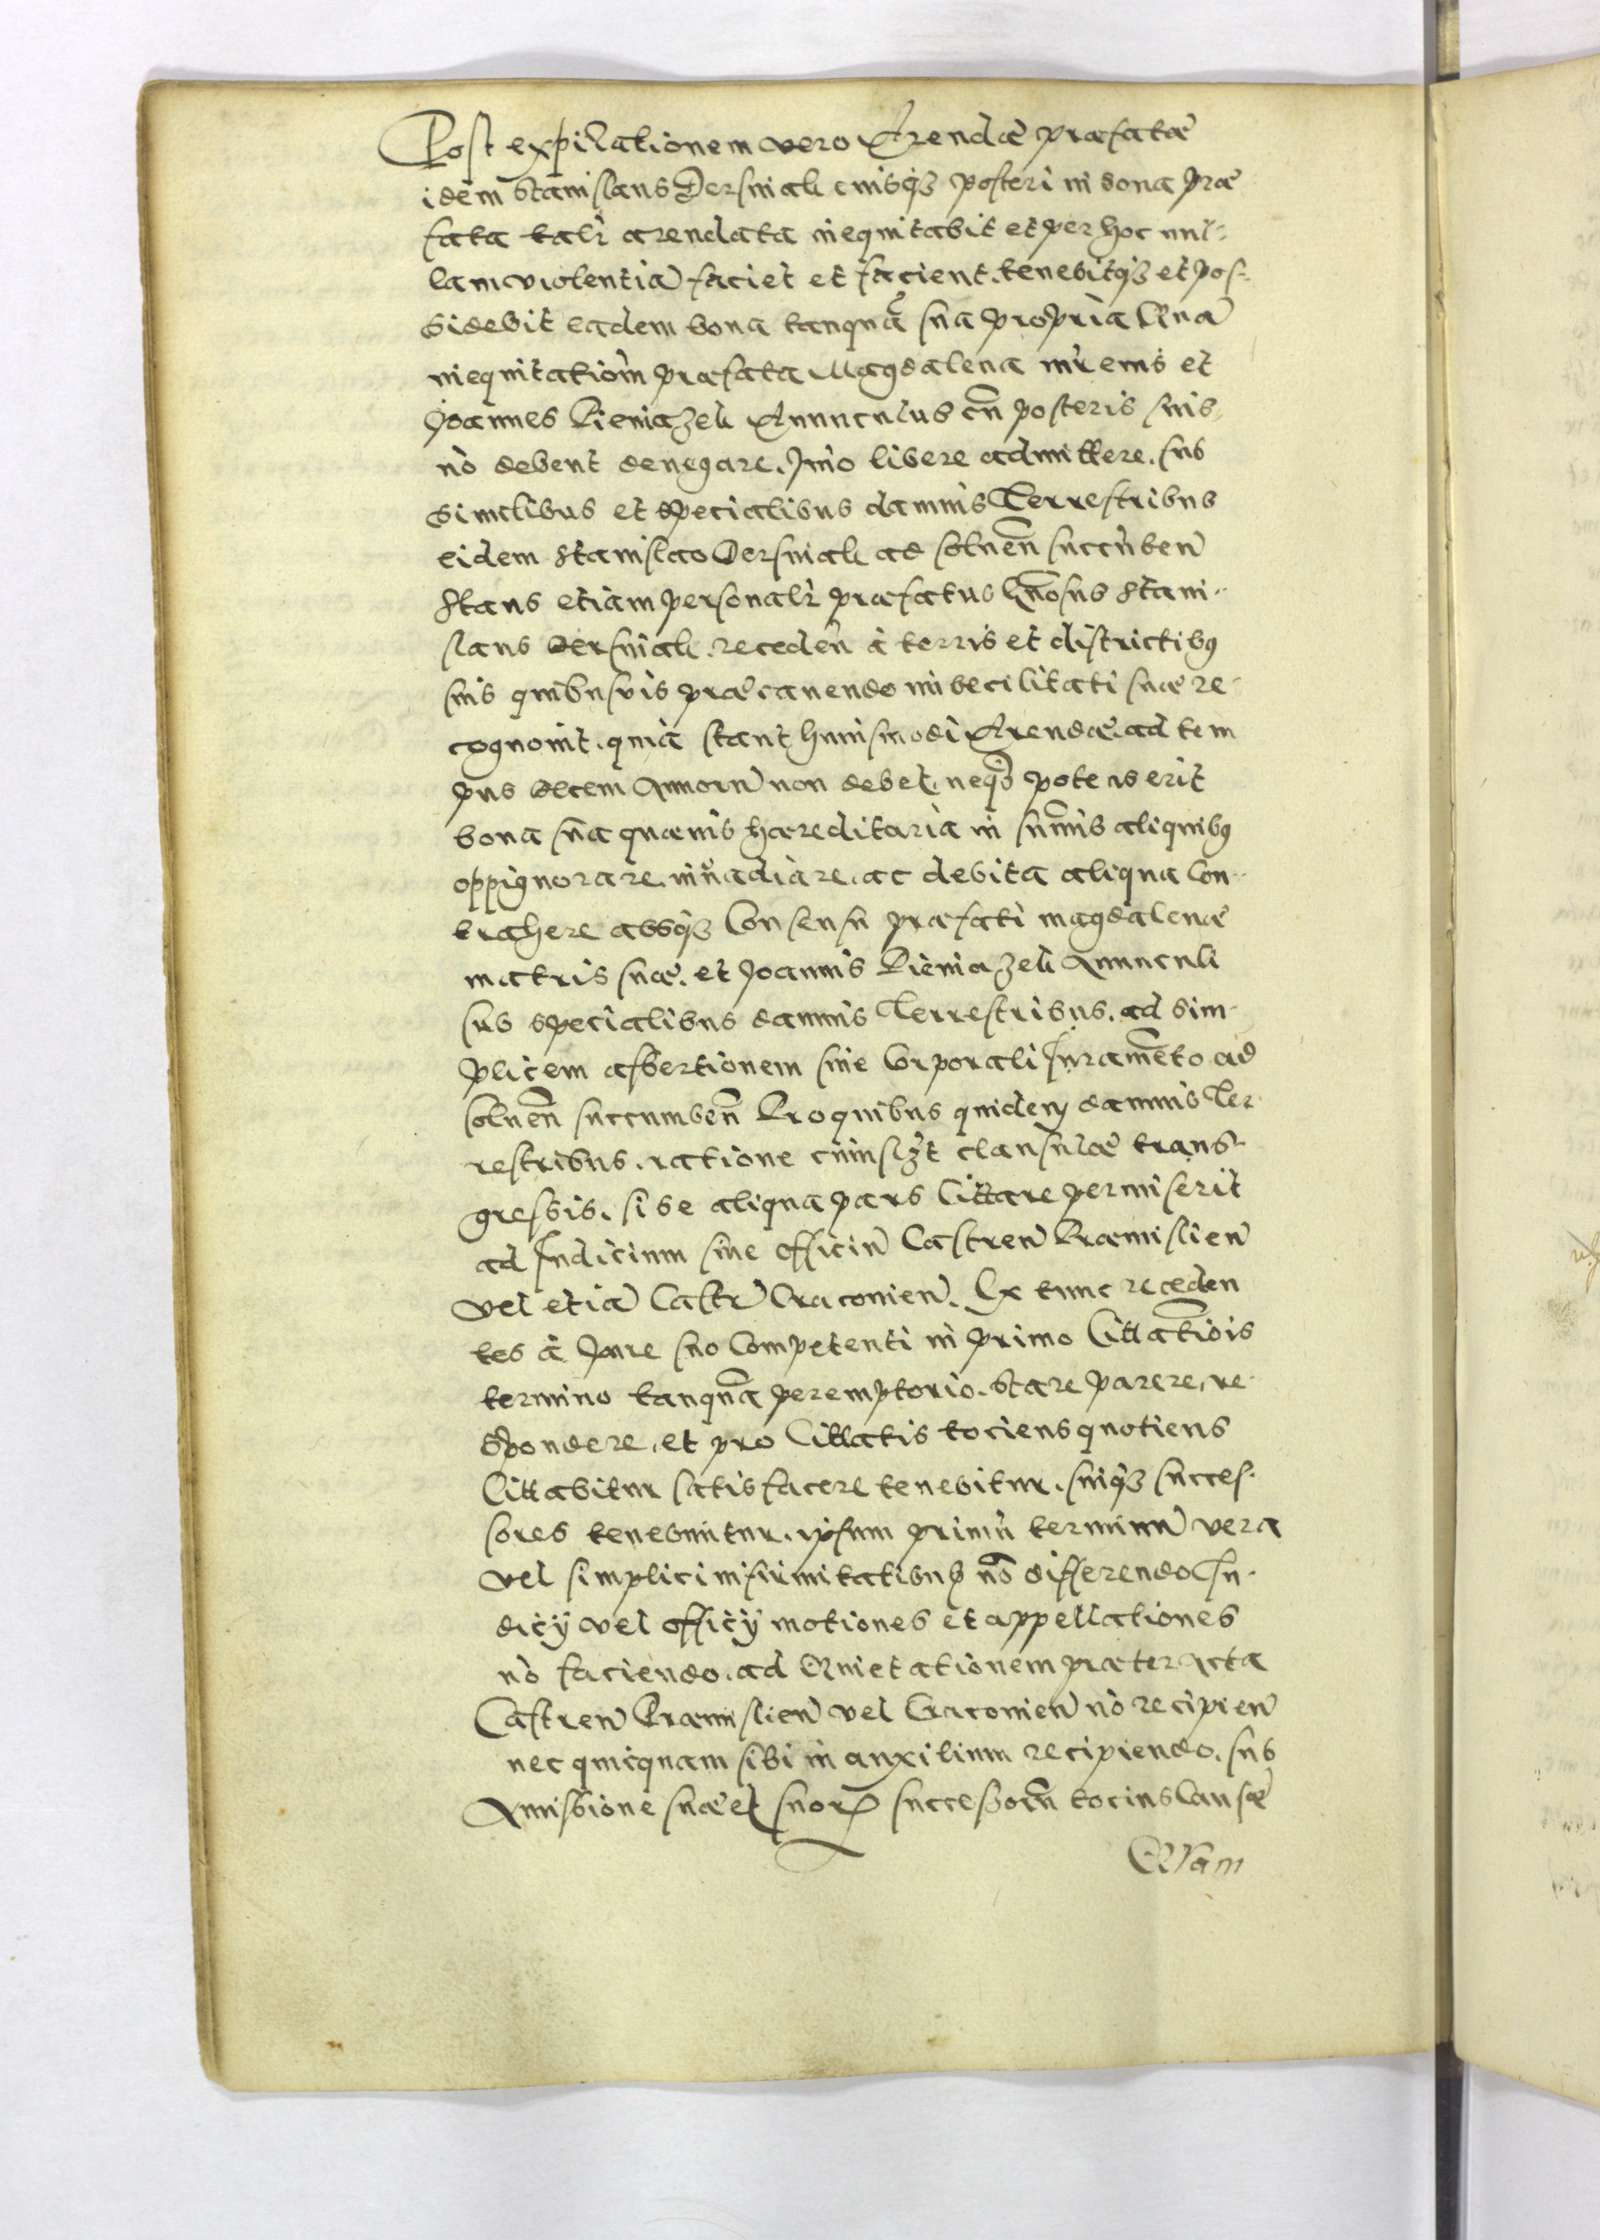 Post expirationem vero Arendæ præfatæ
idem Stanislaus Dersniak eiusqꝫ posteri in bona præ
fata talr̃ arendata inequitabit et per hoc nul-
lam violentiã faciet et facient. tenebitqꝫ et pos-
sidebit eadem bona tanquã sua propria Quã
inequitatiõm præfata Magdalena mr̃ eius et
Joannes Pieniazek Auunculus cũ posteris suis
nõ debent denegare. Jmo libere admittere. sub
similibus et specialibus damnis Terrestribus
eidem Stanislao Dersniak ad soluen̄ succũben̄
Stans etiam personalr̃ præfatus Gñosus Stani-
slaus Dersniak. receden̄ à terris et districtibꝰ
suis quibusuis præcauendo imbecilitati suæ re-
cognouit. quià stant huiusmodi Arendæ. ad tem
pus decem Annorũ non debet, neqꝫ potens erit
bona sua quæuis hæreditaria in summis aliquibꝰ
oppignorare. inuadiare. ac debita aliqua Con-
trahere absqꝫ Consensu præfati Magdalenæ
matris suæ. et Joannis Pieniazek Auunculi
sub specialibus damnis Terrestribus. ad sim-
plicem assertionem sine Corporali Juramento ad
soluen̄ succumben̄ Pro quibus quidem damnis Ter-
restribus. ratione cuiuslꝫt clausulæ trans-
gressis. si se aliqua pars Cittare permiserit
ad Judicium siue officiũ Castren̄ Præmislien̄
vel etiã Castrẽ Cracouien̄. Ex tunc receden
tes à Jure suo Competenti in primo Cittatiõis
termino tanquã peremptorio. Stare parere, re-
spondere, et pro Cittatis tociens quotiens
Cittabitur satisfacere tenebitur. suiqꝫ succes-
sores tenebuntur. ipsum primũ terminũ vera
vel simplici infirmitatibus nõ differendo Ju-
dicÿ vel officÿ motiones et appellationes
nõ faciendo. ad Quietationem præter Acta
Castren̄ Præmislien̄ vel Cracouien̄ nõ recipien̄
nec quicquam sibi in auxilium recipiendo. sub
Amissione suæ et suorꝝ successorũ tocius Causæ
Quam